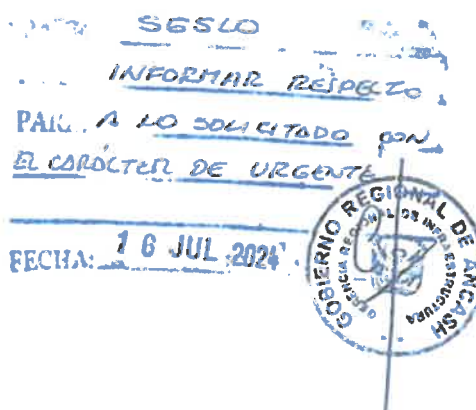 SGSLO
INFORMAR RESPECTO
A LO SOLICITADO CON
EL CARÁCTER DE URGENTE
FECHA: 16 JUL 2024
GOBIERNO REGIONAL DE ANCASH
GERENCIA REGIONAL DE INFRAESTRUCTURA